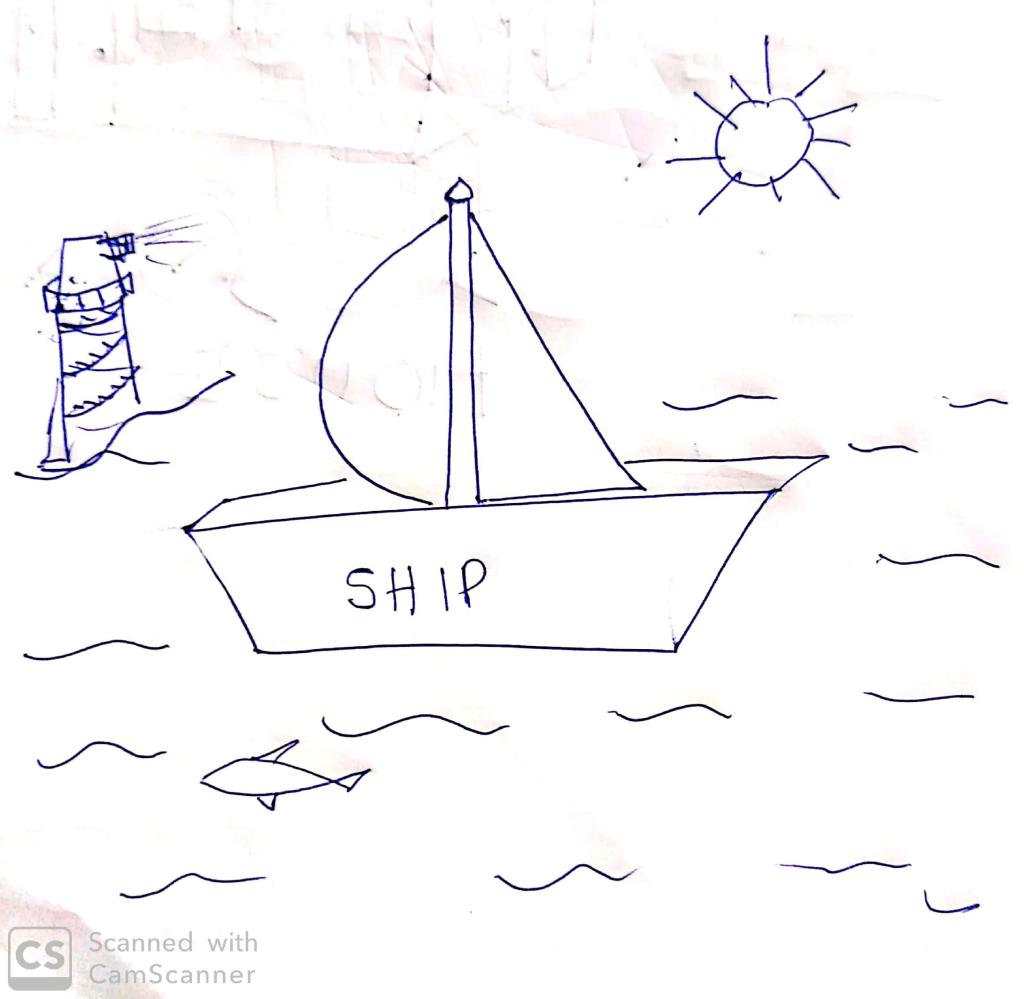 SHIP
CS Scanned with
CamScanner